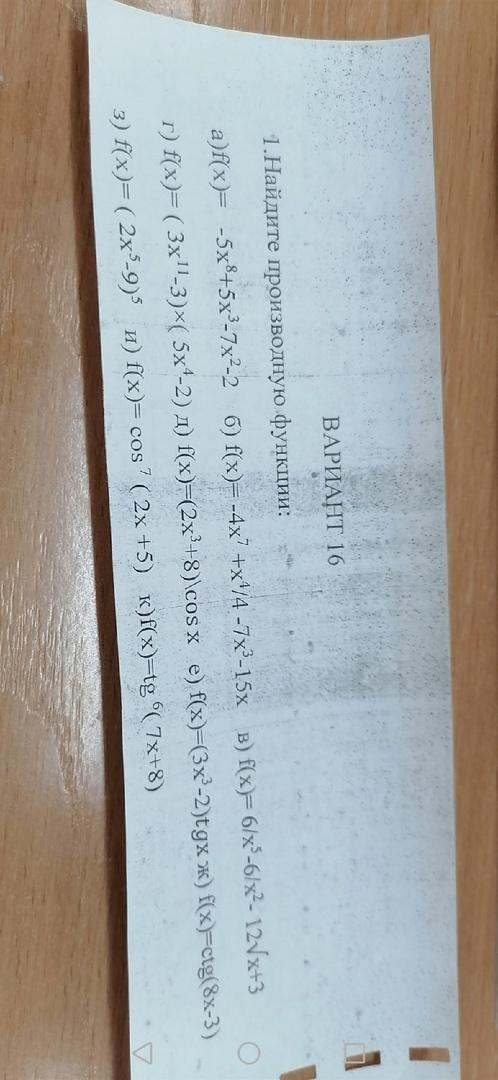 ВАРИАНТ 16
1.Найдите производную функции:
а)f(x)= -5x⁸+5x³-7x²-2 б) f(x)= -4x⁷ +x⁴/4 -7x³-15x в) f(x)= 6/x⁵-6/x²- 12√x+3
г) f(x)= ( 3x¹¹-3)×( 5x⁴-2) д) f(x)=(2x³+8)\cos x е) f(x)=(3x³-2)tgx ж) f(x)=ctg(8x-3)
з) f(x)= ( 2x⁵-9)⁵ и) f(x)= cos ⁷ ( 2x +5) к)f(x)=tg ⁶( 7x+8)